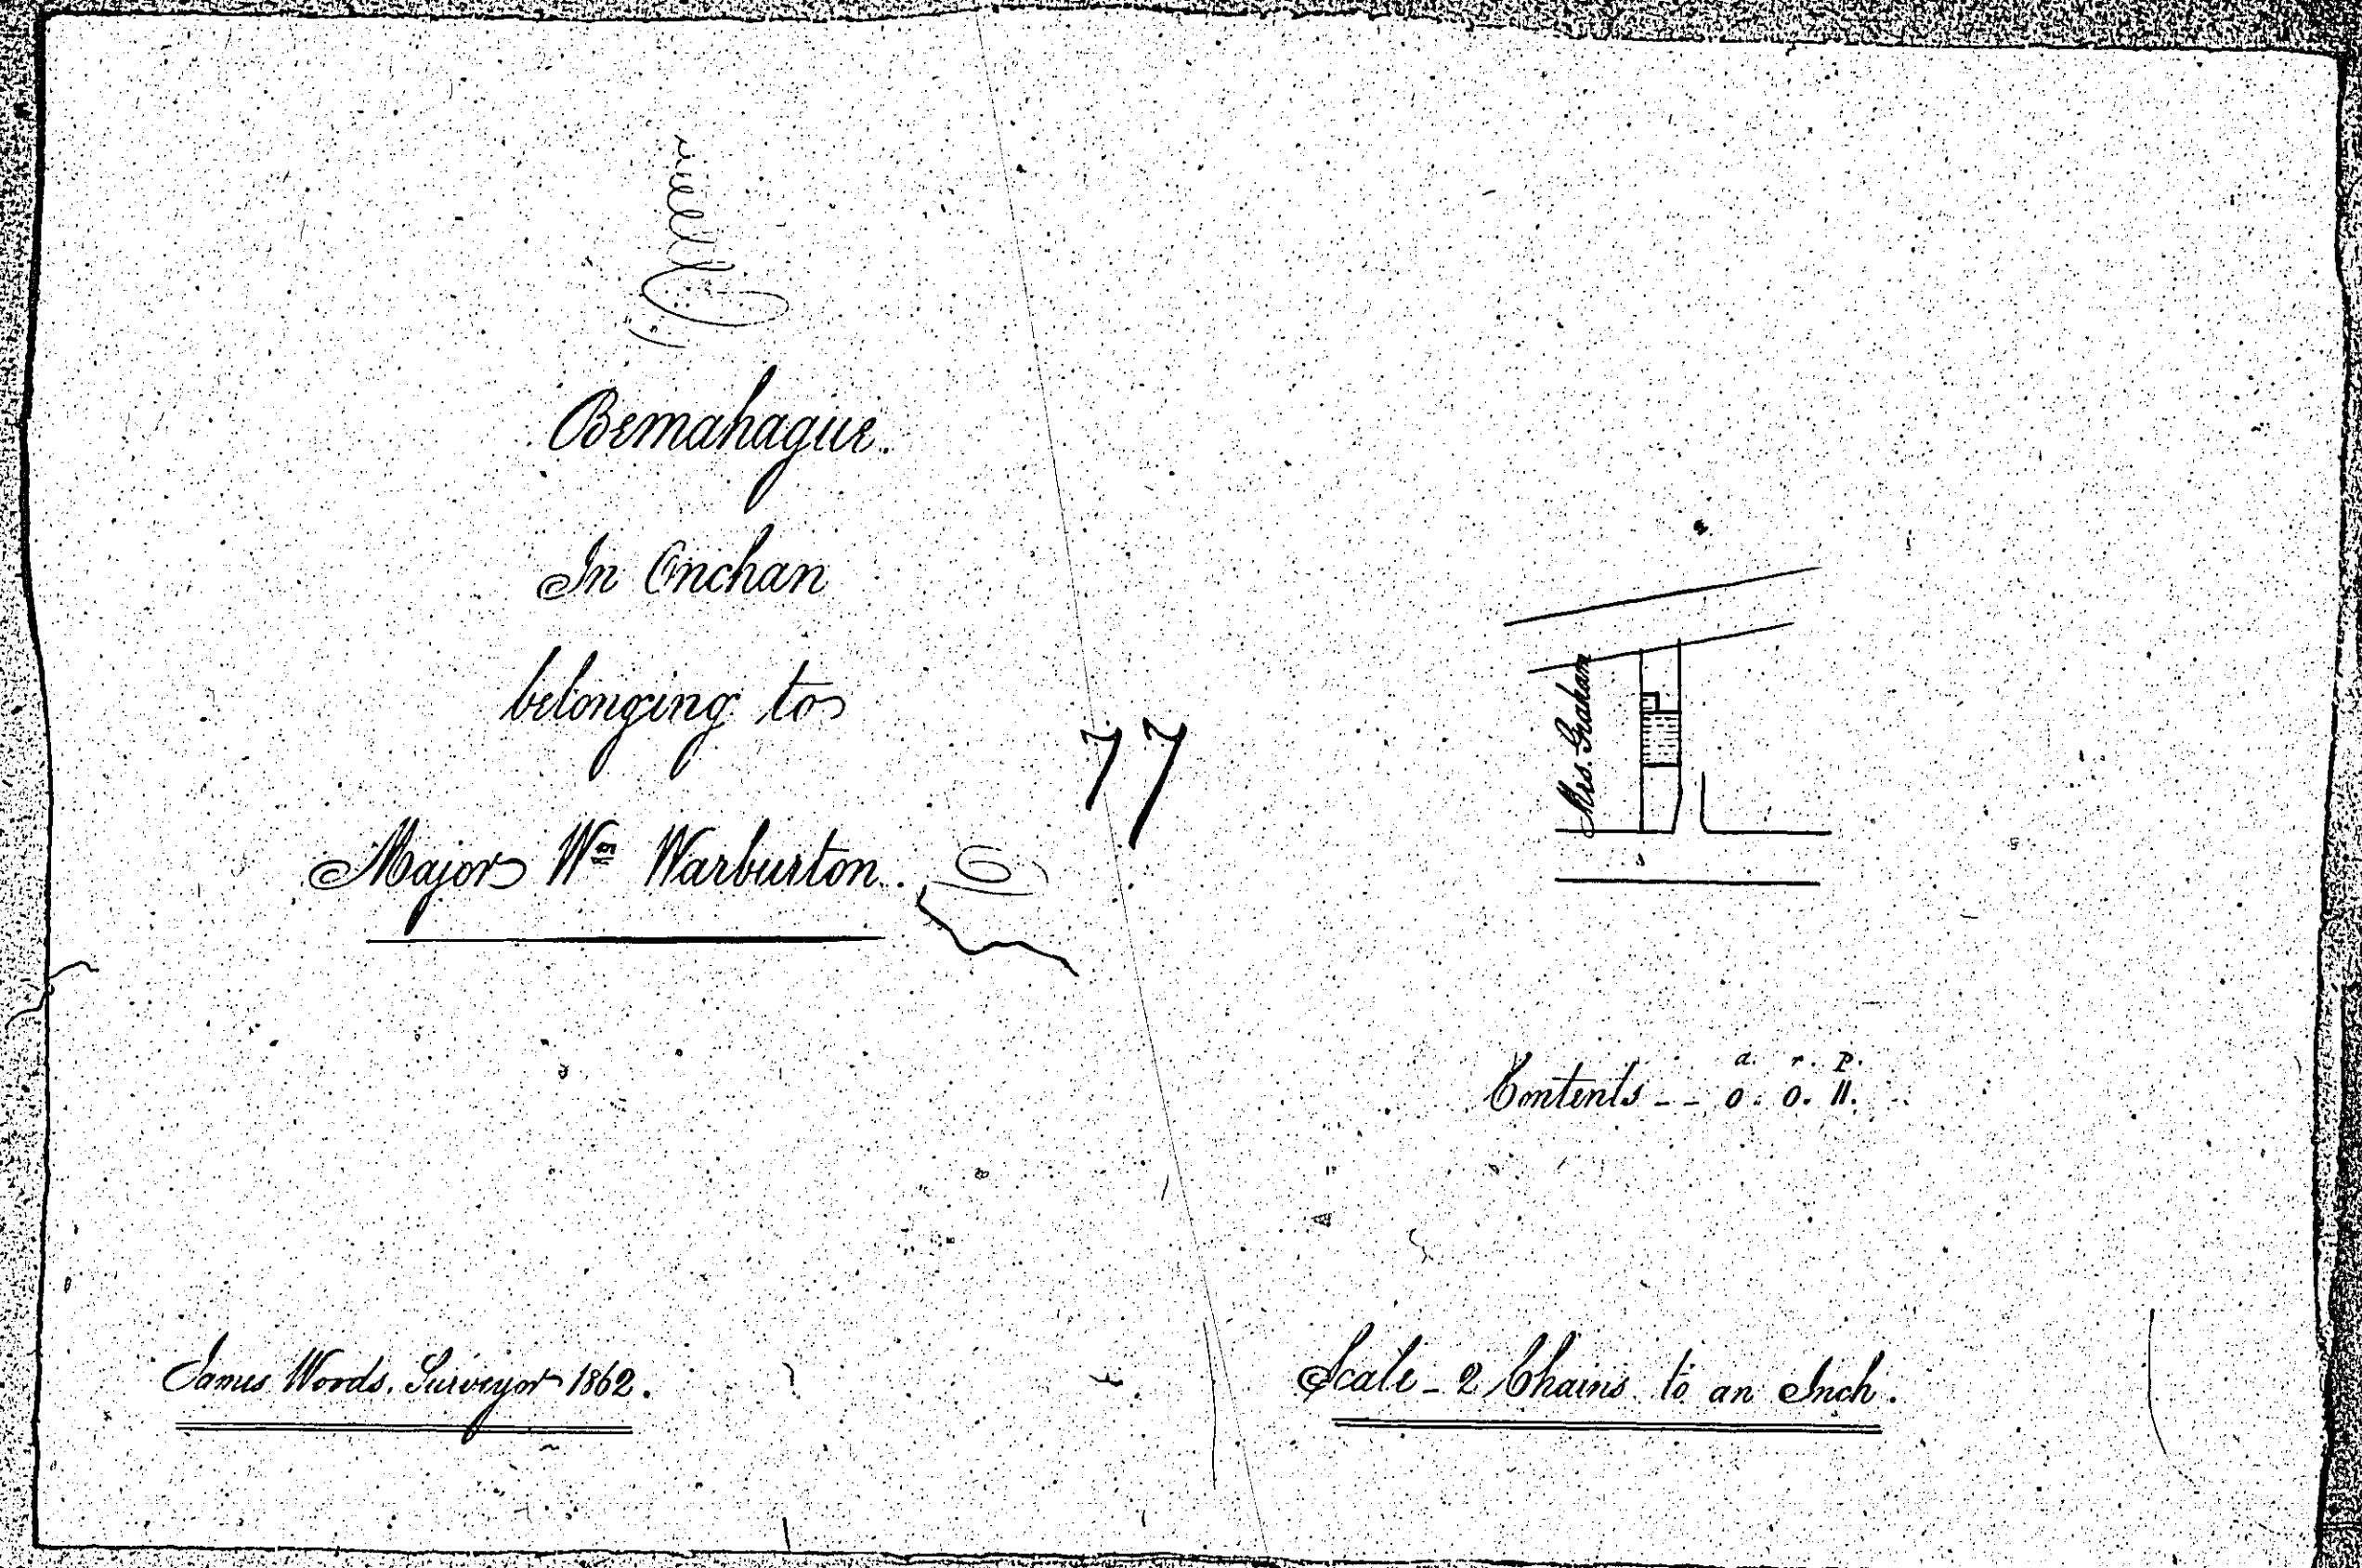 Bemahague.
In Onchan
belonging to
Major Wm Warburton.
77
Mrs. Graham
a. r. p.
Contents - - 0. 0. 11.
James Woods. Surveyor 1862.
Scale - 2 Chains to an Inch.